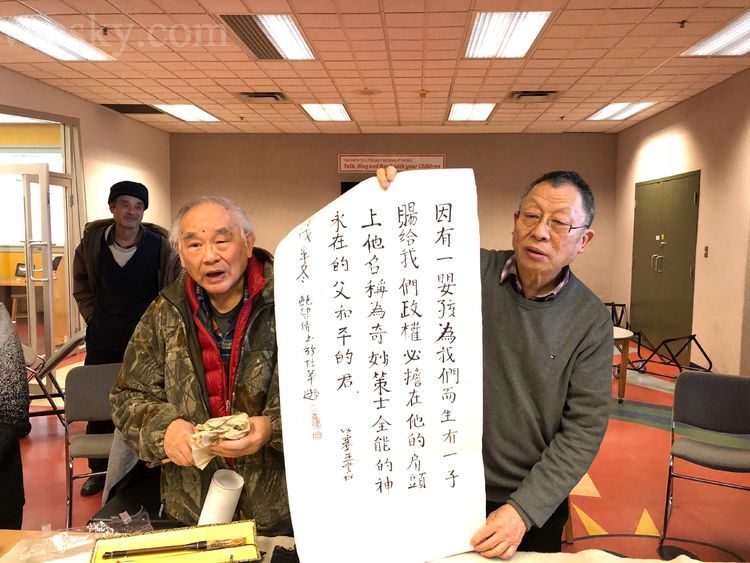 vansky.com
THE PATH TO LITERACY BEGINS AT HOME
Talk, Sing and Read with your Children
因有一嬰孩為我們而生有一子
賜給我們政權必擔在他的肩頭
上他名稱為奇妙策士全能的神
永在的父和平的君